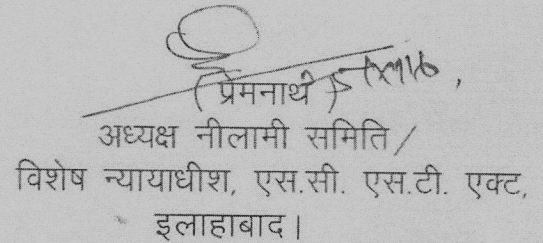 (प्रेमनाथ)
अध्यक्ष नीलामी समिति/
विशेष न्यायाधीश, एस.सी. एस.टी. एक्ट,
इलाहाबाद।